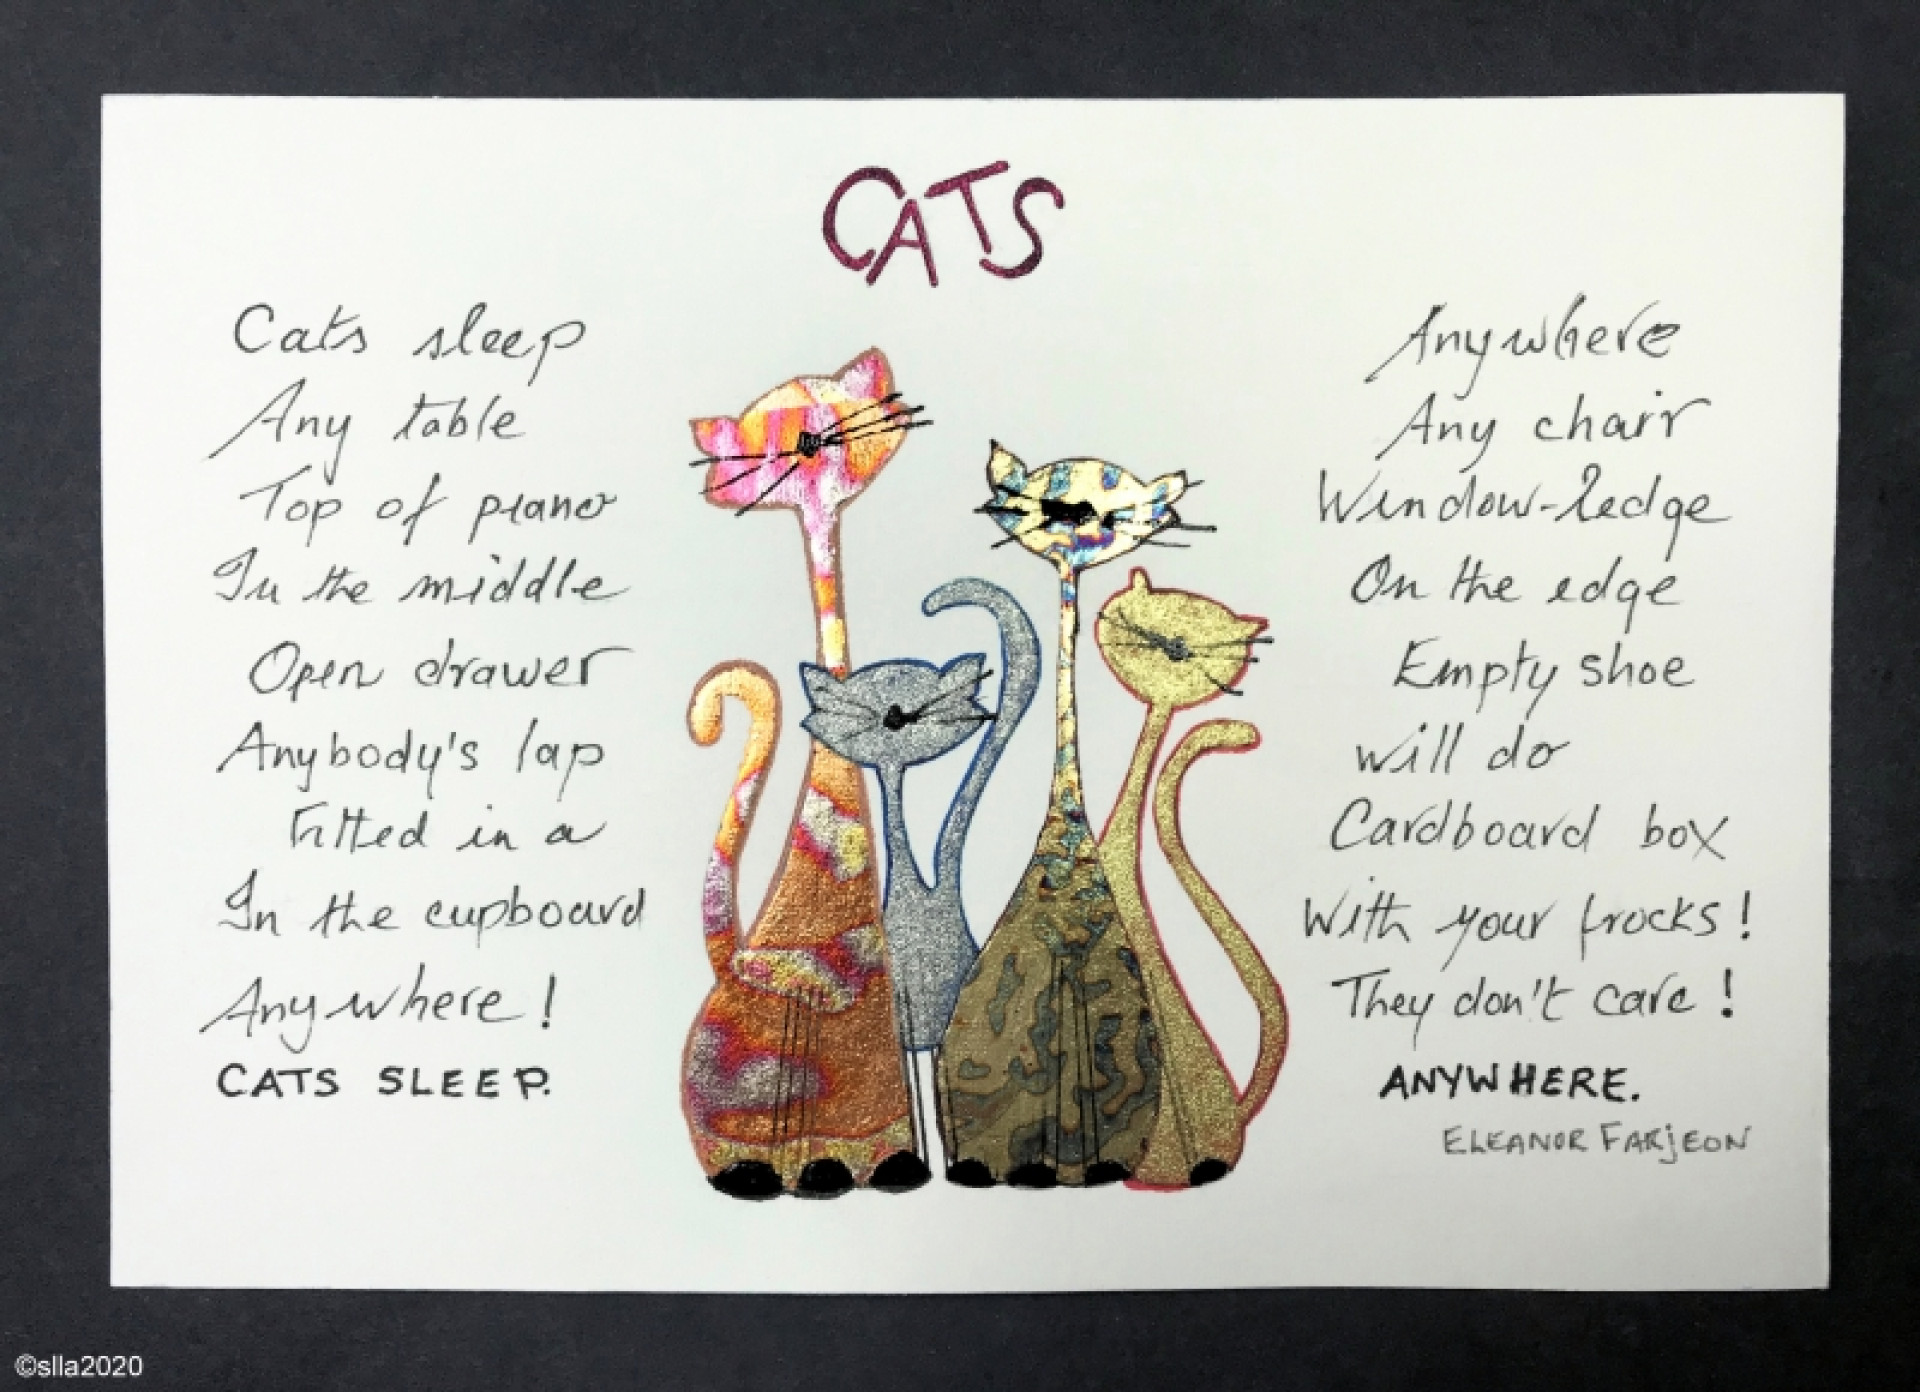 CATS
Cats sleep Anywhere
Any table Any chair
Top of piano Window-ledge
In the middle On the edge
Open drawer Empty shoe
Anybody's lap will do
Fitted in a Cardboard box
In the cupboard With your frocks!
Anywhere! They don't care!
CATS SLEEP. ANYWHERE.
ELEANOR FARJEON
©slla2020